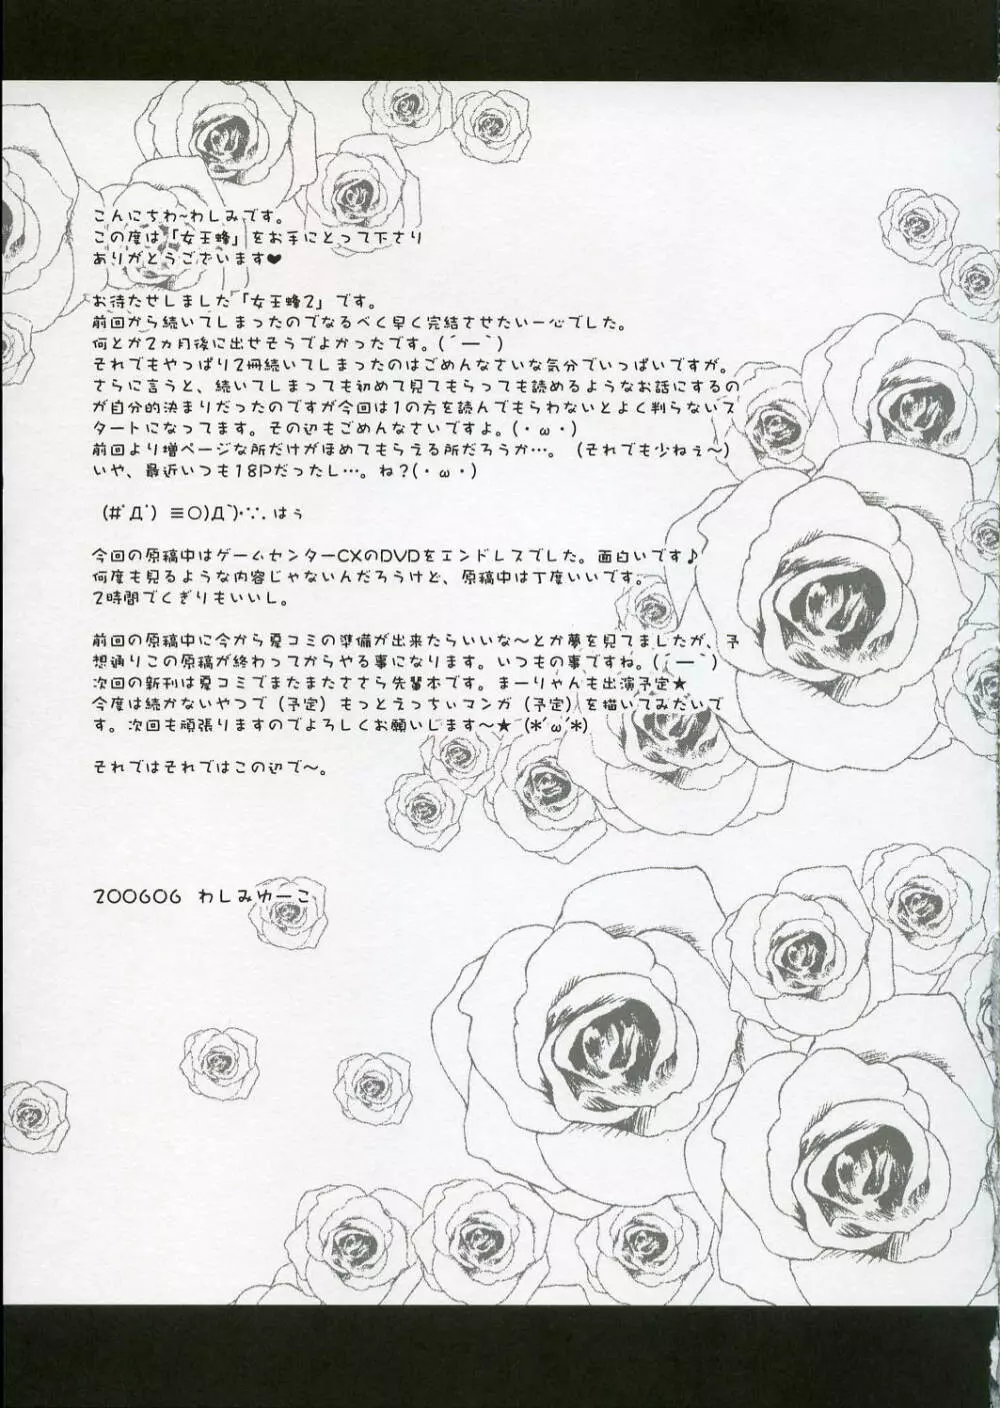 こんにちわ~わしみです。
この度は「女王蜂」をお手にとって下さり
ありがとうございます♥
お待たせしました「女王蜂2」です。
前回から続いてしまったのでなるべく早く完結させたい一心でした。
何とか2ヵ月後に出せそうでよかったです。(´ー｀)
それでもやっぱり2冊続いてしまったのはごめんなさいな気分でいっぱいですが。
さらに言うと、続いてしまっても初めて見てもらっても読めるようなお話にするの
が自分的決まりだったのですが今回は1の方を読んでもらわないとよく判らないス
タートになってます。その辺もごめんなさいですよ。(・ω・)
前回より増ページな所だけがほめてもらえる所だろうか…。(それでも少ねぇ～)
いや、最近いつも18Pだったし…。ね?(・ω・)
(#ﾟДﾟ) ≡○)Д`)･∵. はぅ
今回の原稿中はゲームセンターCXのDVDをエンドレスでした。面白いです♪
何度も見るような内容じゃないんだろうけど、原稿中は丁度いいです。
2時間でくぎりもいいし。
前回の原稿中に今から夏コミの準備が出来たらいいな～とか夢を見てましたが、予
想通りこの原稿が終わってからやる事になります。いつもの事ですね。(´ー｀)
次回の新刊は夏コミでまたまたささら先輩本です。まーりゃんも出演予定★
今度は続かないやつで(予定)もっとえっちぃマンガ(予定)を描いてみたいで
す。次回も頑張りますのでよろしくお願いします～★(*´ω`*)
それではそれではこの辺で～。
200606 わしみゆーこ